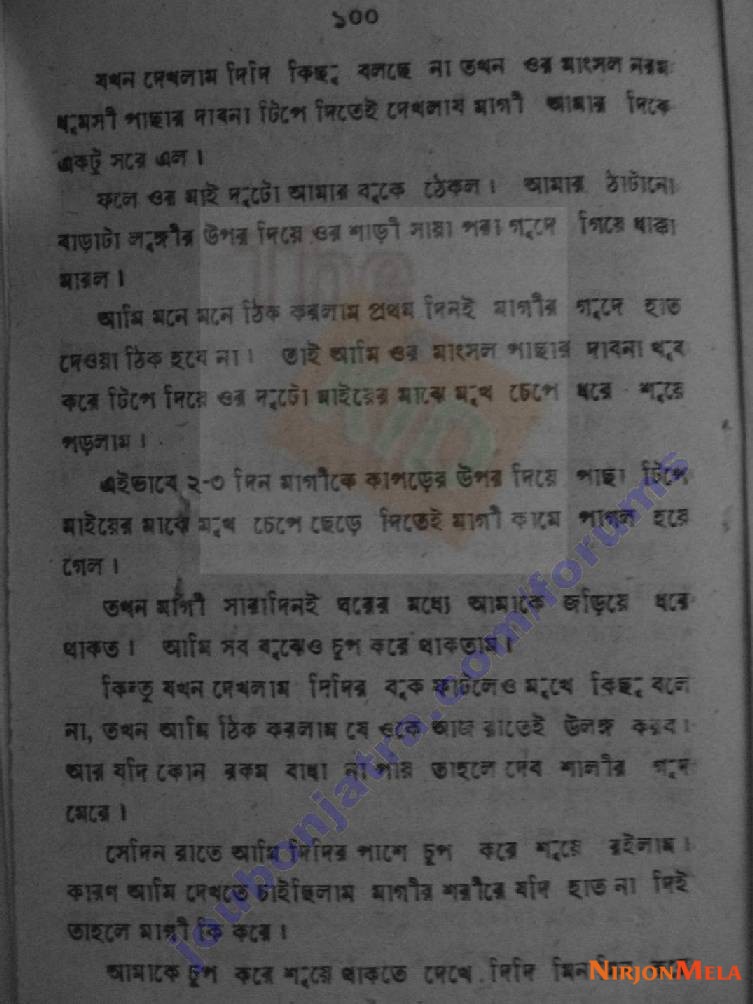 ১০০
যখন দেখলাম দিদি কিছু বলছে না তখন ওর মাংসল নরম
ধুমসী পাছার দাবনা টিপে দিতেই দেখলাম মাগী আমার দিকে
একটু সরে এল।
ফলে ওর মাই দুটো আমার বুকে ঠেকল। আমার ঠাটানো
বাড়াটা লুঙ্গীর উপর দিয়ে ওর শাড়ী সায়া পরা গুদে গিয়ে ধাক্কা
মারল।
আমি মনে মনে ঠিক করলাম প্রথম দিনই মাগীর গুদে হাত
দেওয়া ঠিক হবে না। তাই আমি ওর মাংসল পাছার দাবনা খুব
করে টিপে দিয়ে ওর দুটো মাইয়ের মাঝে মুখ চেপে ধরে শুয়ে
পড়লাম।
এইভাবে ২-৩ দিন মাগীকে কাপড়ের উপর দিয়ে পাছা টিপে
মাইয়ের মাঝে মুখ চেপে ছেড়ে দিতেই মাগী কামে পাগল হয়ে
গেল।
তখন মাগী সারাদিনই ঘরের মধ্যে আমাকে জড়িয়ে ধরে
থাকত। আমি সব বুঝেও চুপ করে থাকতাম।
কিন্তু যখন দেখলাম দিদির বুক ফাটলেও মুখে কিছু বলে
না, তখন আমি ঠিক করলাম যে ওকে আজ রাতেই উলঙ্গ করব।
আর যদি কোন রকম বাধা না পায় তাহলে দেব শালীর গুদ
মেরে।
সেদিন রাতে আমি দিদির পাশে চুপ করে শুয়ে রইলাম।
কারণ আমি দেখতে চাইছিলাম মাগীর শরীরে যদি হাত না দিই
তাহলে মাগী কি করে।
আমাকে চুপ করে শুয়ে থাকতে দেখে দিদি
The
KID
joubonjatra.com/forums
NIRJONMELA